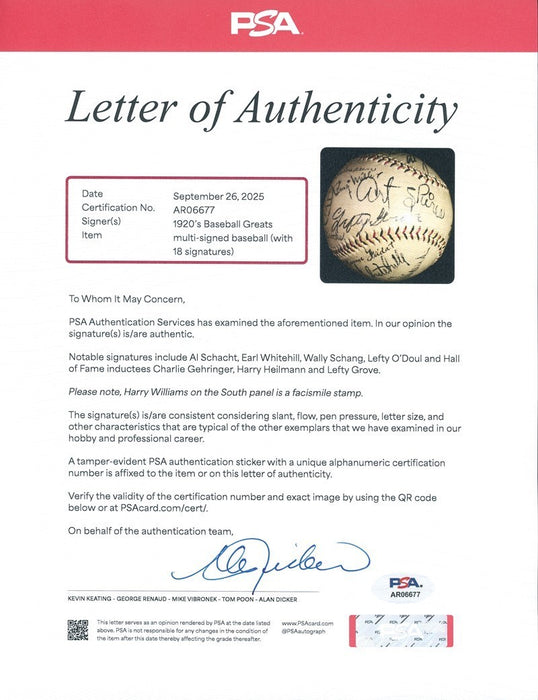 PSA
Letter of Authenticity
Date September 26, 2025
Certification No. AR06677
Signer(s) 1920's Baseball Greats
Item multi-signed baseball (with
18 signatures)
To Whom It May Concern,
PSA Authentication Services has examined the aforementioned item. In our opinion the
signature(s) is/are authentic.
Notable signatures include Al Schacht, Earl Whitehill, Wally Schang, Lefty O'Doul and Hall
of Fame inductees Charlie Gehringer, Harry Heilmann and Lefty Grove.
Please note, Harry Williams on the South panel is a facismile stamp.
The signature(s) is/are consistent considering slant, flow, pen pressure, letter size, and
other characteristics that are typical of the other exemplars that we have examined in our
hobby and professional career.
A tamper-evident PSA authentication sticker with a unique alphanumeric certification
number is affixed to the item or on this letter of authenticity.
Verify the validity of the certification number and exact image by using the QR code
below or at PSAcard.com/cert/.
On behalf of the authentication team,
PSA.
AR06677
KEVIN KEATING - GEORGE RENAUD - MIKE VIBRONEK - TOM POON - ALAN DICKER
This letter serves as an opinion rendered by PSA at the date listed
above. PSA is not responsible for any changes in the condition of
the item after this date thereby affecting the grade thereafter.
www.PSAcard.com
@PSAautograph